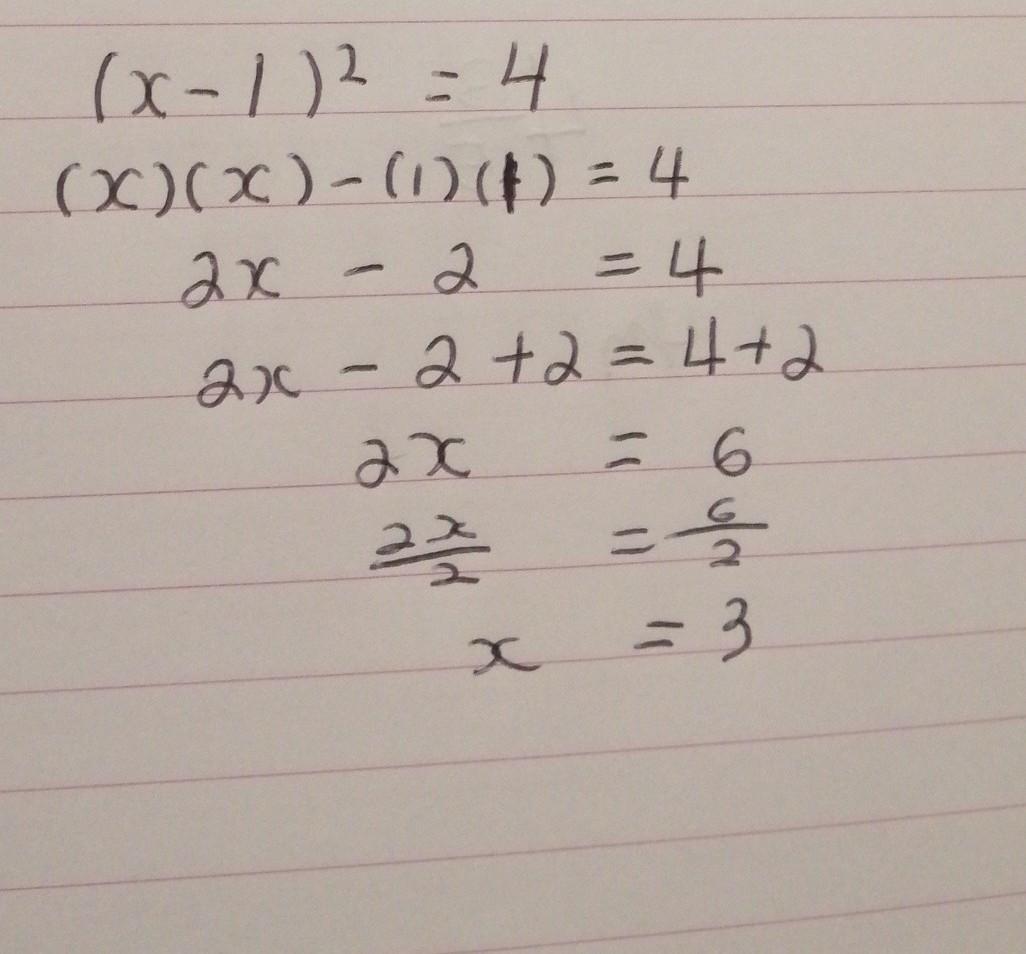 (x-1)² = 4
(x)(x) - (1)(1) = 4
2x - 2 = 4
2x - 2 + 2 = 4 + 2
2x = 6
2x/2 = 6/2
x = 3